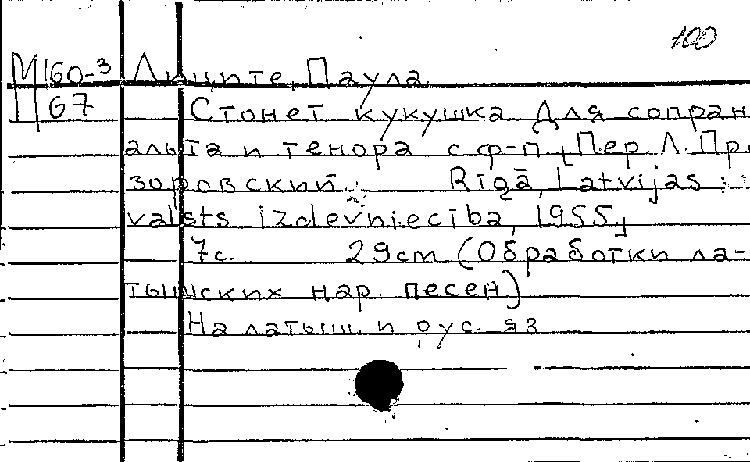 100
М160-3 Лиците, Паула
П67 Стонет кукушка. Для сопран
альта и тенора с ф-п. Пер. Л. Пр
зоровский. Rīgā, Latvijas
valsts izdevniecība, 1955,
7с. 29см (Обработки ла-
тышских нар. песен)
На латыш. и рус. яз